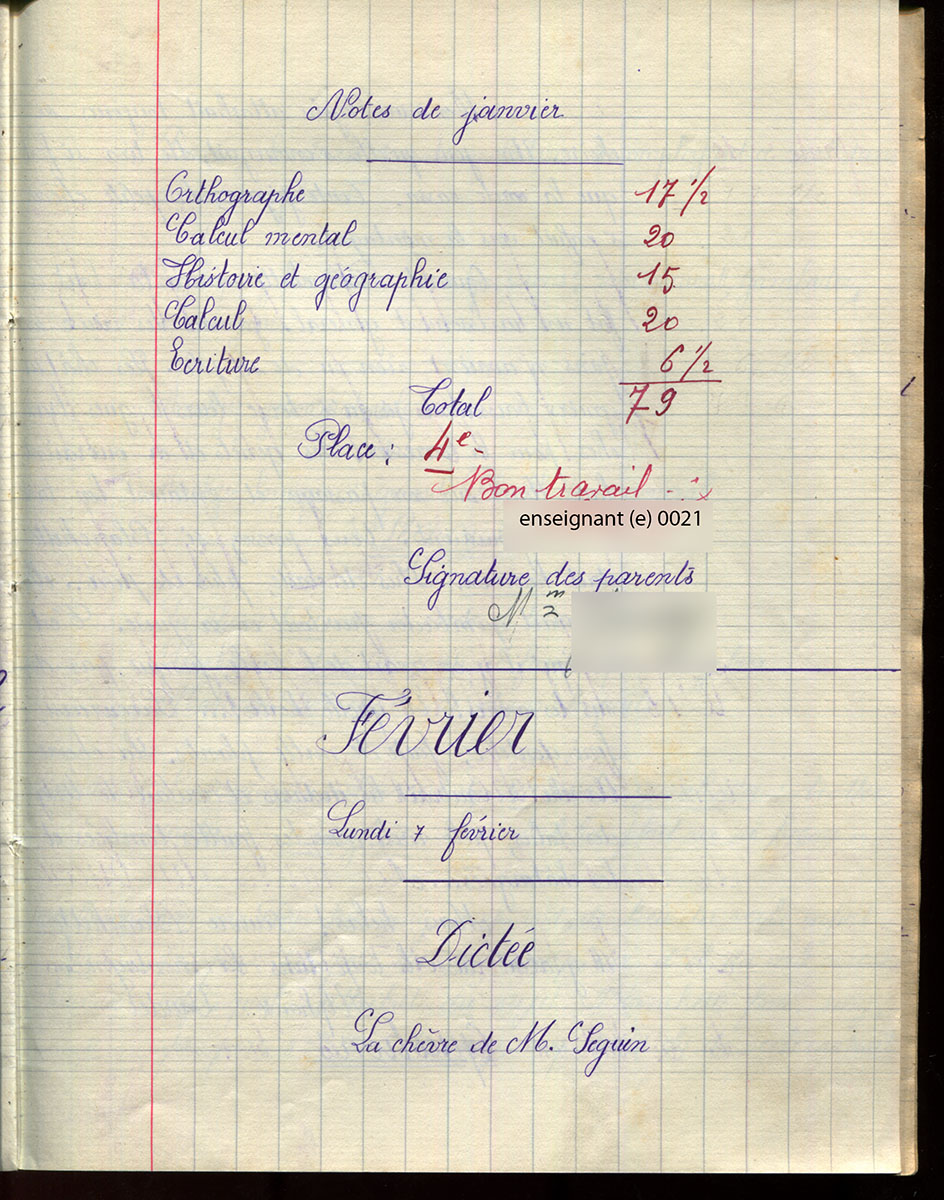 Notes de janvier
Orthographe 17 1/2
Calcul mental 20
Histoire et géographie 15
Calcul 20
Ecriture 6 1/2
Total 79
Place : 4e -
Bon travail -
enseignant (e) 0021
Signature des parents
Février
Lundi 7 février
Dictée
La chèvre de M. Seguin